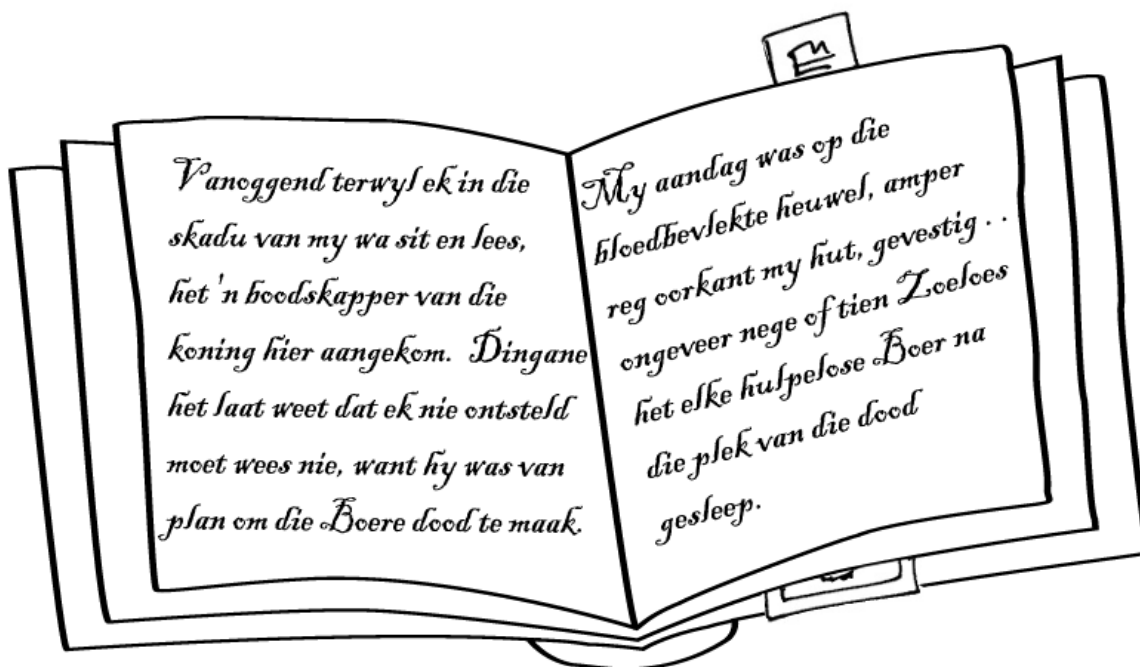 Vanoggend terwyl ek in die
skadu van my wa sit en lees,
het 'n boodskapper van die
koning hier aangekom. Dingane
het laat weet dat ek nie ontsteld
moet wees nie, want hy was van
plan om die Boere dood te maak.
My aandag was op die
bloedbevlekte heuwel, amper
reg oorkant my hut, gevestig . .
ongeveer nege of tien Zoeloes
het elke hulpelose Boer na
die plek van die dood
gesleep.